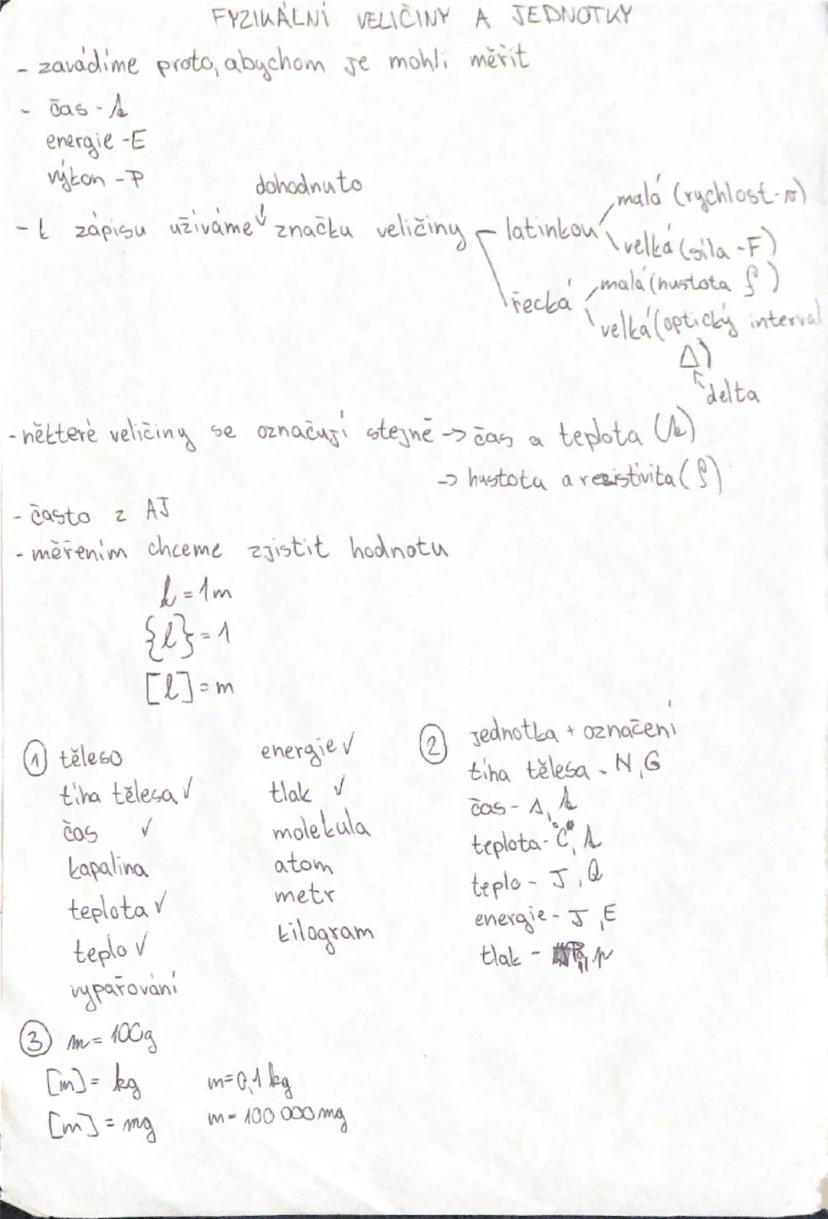 FYZIKÁLNÍ VELIČINY A JEDNOTKY
- zavádíme proto, abychom je mohli měřit
- čas - t
energie - E
výkon - P
dohodnuto
- k zápisu užíváme značku veličiny
latinkou
malá (rychlost - v)
velká (síla - F)
řecká
malá (hustota ρ)
velká (optický interval
Δ)
delta
- některé veličiny se označují stejně -> čas a teplota (t)
-> hustota a rezistivita (ρ)
- často z AJ
- měřením chceme zjistit hodnotu
l = 1m
{l} = 1
[l] = m
① těleso
tíha tělesa ✓
čas ✓
kapalina
teplota ✓
teplo ✓
vypařování
energie ✓
tlak ✓
molekula
atom
metr
kilogram
② jednotka + označení
tíha tělesa - N, G
čas - s, t
teplota - °C, t
teplo - J, Q
energie - J, E
tlak - Pa, p
③ m = 100g
[m] = kg m = 0,1 kg
[m] = mg m = 100 000 mg